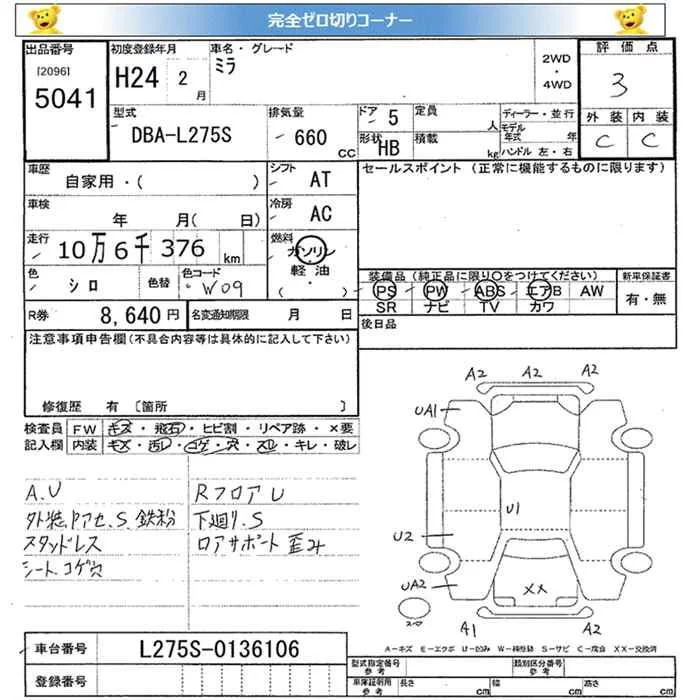 完全ゼロ切りコーナー
出品番号
[2096]
5041
初度登録年月
H24 2月
車名・グレード
ミラ
2WD
・
4WD
評価点
3
外装 内装
C C
型式
DBA-L275S
排気量
660 CC
ドア 5
形状 HB
定員 人
積載 kg
ディーラー・並行
モデル年式 年
ハンドル 左・右
車歴
自家用・( )
シフト AT
車検
年 月( 日)
冷房 AC
走行
10万6千376 km
燃料
ガソリン
軽油
( )
色 シロ
色替
色コード W09
R券 8,640円
名変通知期限 月 日
セールスポイント (正常に機能するものに限ります)
装備品(純正品に限り○をつけてください)
PS PW ABS エアB AW
SR ナビ TV カワ
新車保証書
有・無
後日品
注意事項申告欄(不具合内容等は具体的に記入して下さい)
修復歴 有 〔箇所 〕
検査員 FW キズ・飛石・ヒビ割・リペア跡・×要
記入欄 内装 キズ・汚レ・コゲ・穴・スレ・キレ・破レ
A.U
外装Pアセ.S.鉄粉
スタッドレス
シートコゲ穴
RフロアU
下廻り.S
ロアサポート歪み
A2 A2 A2
UA1
U1
U2
UA2
XX
スレ
A1 A2
A－キズ E－エクボ U－凹み W－補修跡 S－サビ C－腐食 XX－交換済
車台番号 L275S-0136106
登録番号
型式指定番号
参考
類別区分番号
参考
車庫証明用
参考
長さ cm 幅 cm 高さ cm